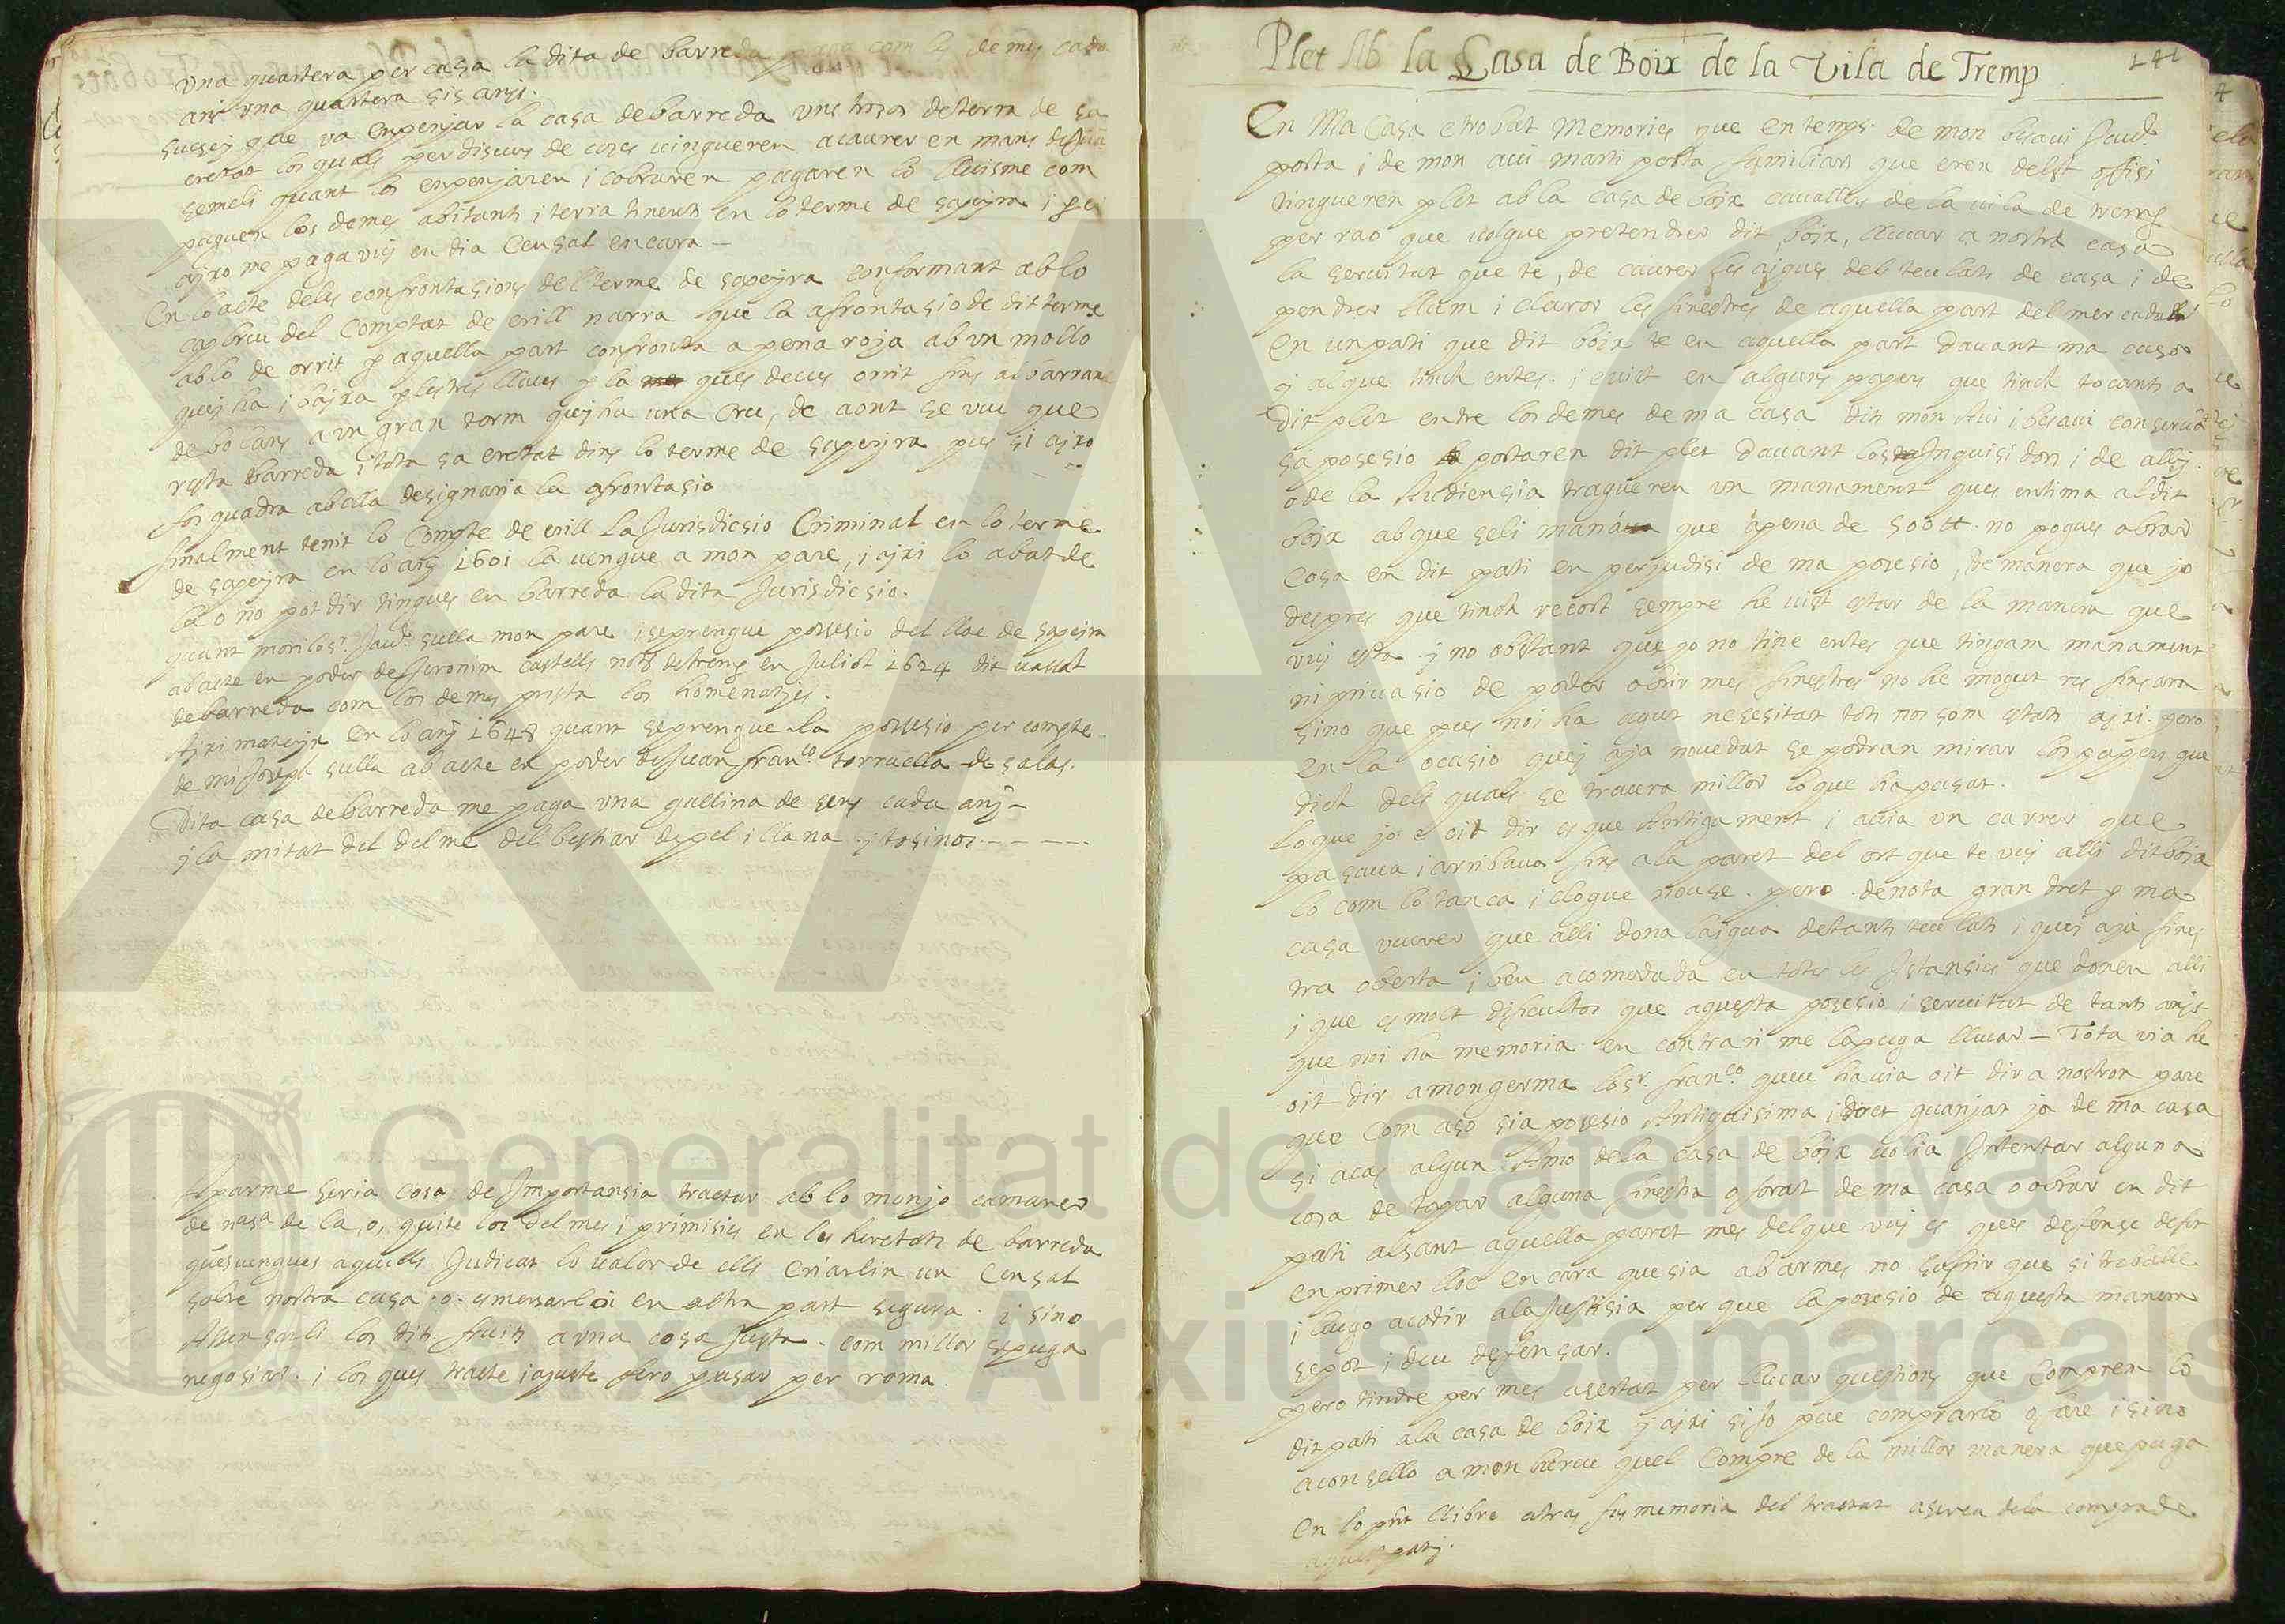 una quartera per casa la dita de barreda paga com les demes cada
any una quartera sis anys.
susey que va enpenjar la casa de barreda uns trosos de terra de sa
eretat los quals per discurs de coses vingueren a caurer en mans de
semeli quant los enpenjaren i cobraren pagaren lo lluisme com
paguen los demes abitants i terra tinents en lo terme de sapeyra i
ajxo me paga vuy en dia Censal encara –
En lo acte dels confrontasions del terme de sapeyra conformant ab lo
capbreu del Comptat de erill narra que la afrontasio de dit terme
ab lo de orrit p aquella part confronta a pena roja ab un mollo
quey ha i bajxa p les tres lluus p la ques deius orrit fins al barranc
de bocans a un gran torm quey ha una Cru, de aont se veu que
resta barreda i tota sa eretat dins lo terme de sapeyra pus si ajxo
fos quadra ab ella designaria la afrontasio
finalment tenit lo Compte de erill La Jurisdicsio Criminal en lo terme
de sapeyra en lo any 1601 la vengue a mon pare, i ajxi lo abat de
la o no pot dir tingues en barreda la dita Jurisdicsio.
quant mori lo sr. Jaud. sulla mon pare i seprengue possesio del lloc de sapeyra
ab acte en poder de Jeronim castells notr de tremp en Juliol 1624 dit vassal
de barreda com los demes presta los homenatjes.
Ajxi matejx en lo any 1648 quant seprengue la possesio per compte
de mi Joseph sulla ab acte en poder de Juan franco. torruella de salas.
Dita casa de barreda me paga una gallina de sens cada any –
y la mitat del delme del bestiar de pel i llana y tosinos. – – – –
Aparme seria cosa de Importansia tractar ab lo monjo camarer
de nasa de la, o, quite los delmes i primisies en les heretats de barreda
ques vengues aquells Judicar lo valor de ells Criarlin un Censal
sobre nostra casa o esmersarloi en altra part segura. i sino
Arrensarli los dits fruits a una cosa Justa. com millor sepuga
negosiar. i los ques tracte i ajuste fero pasar per roma.
Plet Ab la Casa de Boix de la Vila de Tremp
141
En Ma Casa e trobat Memories que en temps de mon besavi Jaud.
porta i de mon avi marti porta familiars que eren del st offisi
tingueren plet ab la casa de boix cavallers de la vila de tremp
per rao que volgue pretendrer dit boix, llevar a nostra casa
la servitut que te, de caurer les ajgues dels teulats de casa i de
pendrer llum i claror les finestres de aquella part del mercadal
en un pati que dit boix te en aquella part davant ma casa
y al que tinch entes. i e vist en alguns papers que tinch tocants a
dit plet entre los demes de ma casa dits mon Avi i besavi conservá
sa posesio portaren dit plet davant los Inquisidors i de alli
o de la Audiensia tragueren un manament ques intima al dit
boix ab que seli mana que apena de 500 tt. no pogues obrar
Cosa en dit pati en perjudisi de ma posesio, de manera que jo
despres que tinch recort sempre he vist estar de la manera que
vuy esta. y no obstant que jo no tinc entes que tingam manament
ni privasio de poder obrir mes finestres no he mogut res fins ara
sino que pus noi ha agut nesesitat tots nos som estats ajxi. pero
en la ocasio quey aja novedat se podran mirar los papers que
dich dels quals se traura millor lo que ha pasat.
Lo que jo e oit dir es que Antigament i avia un carrer que
pasava i arribava fins a la paret del ort que te vuy alli dit boix
lo com lo tanca i lloque nou se. pero denota gran dret p ma
casa veurer que alli dona lajgua de tants teulats i quei aja fines
tra oberta i ben acomodada en totes les Istansies que donen alli
i que es molt dificultos que aquesta posesio i servitut de tants anys
que noi ha memoria en contrari me la puga llevar – Tota via he
oit dir a mon germa lo sr. franco. queu havia oit dir a nostron pare
que Com aso sia posesio Antiquisima i dret guanjat ja de ma casa
si acas algun Amo de la casa de boix volia Intentar alguna
cosa de tapar alguna finestra o forat de ma casa o obrar en dit
pati alsant aquella paret mes del que vuy es ques defense desst
en primer lloc encara que sia ab armes no sufrir que si treballe
i luego acodir a la Justisia per que la posesio de aquesta manera
se pot i deu defensar.
pero tindre per mes asertat per llevar questions que Compren lo
dit pati a la casa de boix y ajxi si Jo puc comprarlo o fare i sino
aconsello a mon hereu quel Compre de la millor manera que puga
En lo pñt llibre atras fas memoria del tractat aserca de la compra de
aquest pati.